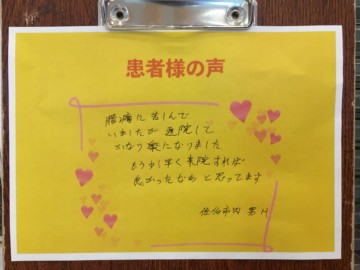 患者様の声
腰痛に苦しんで
いましたが 通院して
かなり楽になりました
もう少し早く来院すれば
良かったかなと思ってます
佐伯市内 男 H